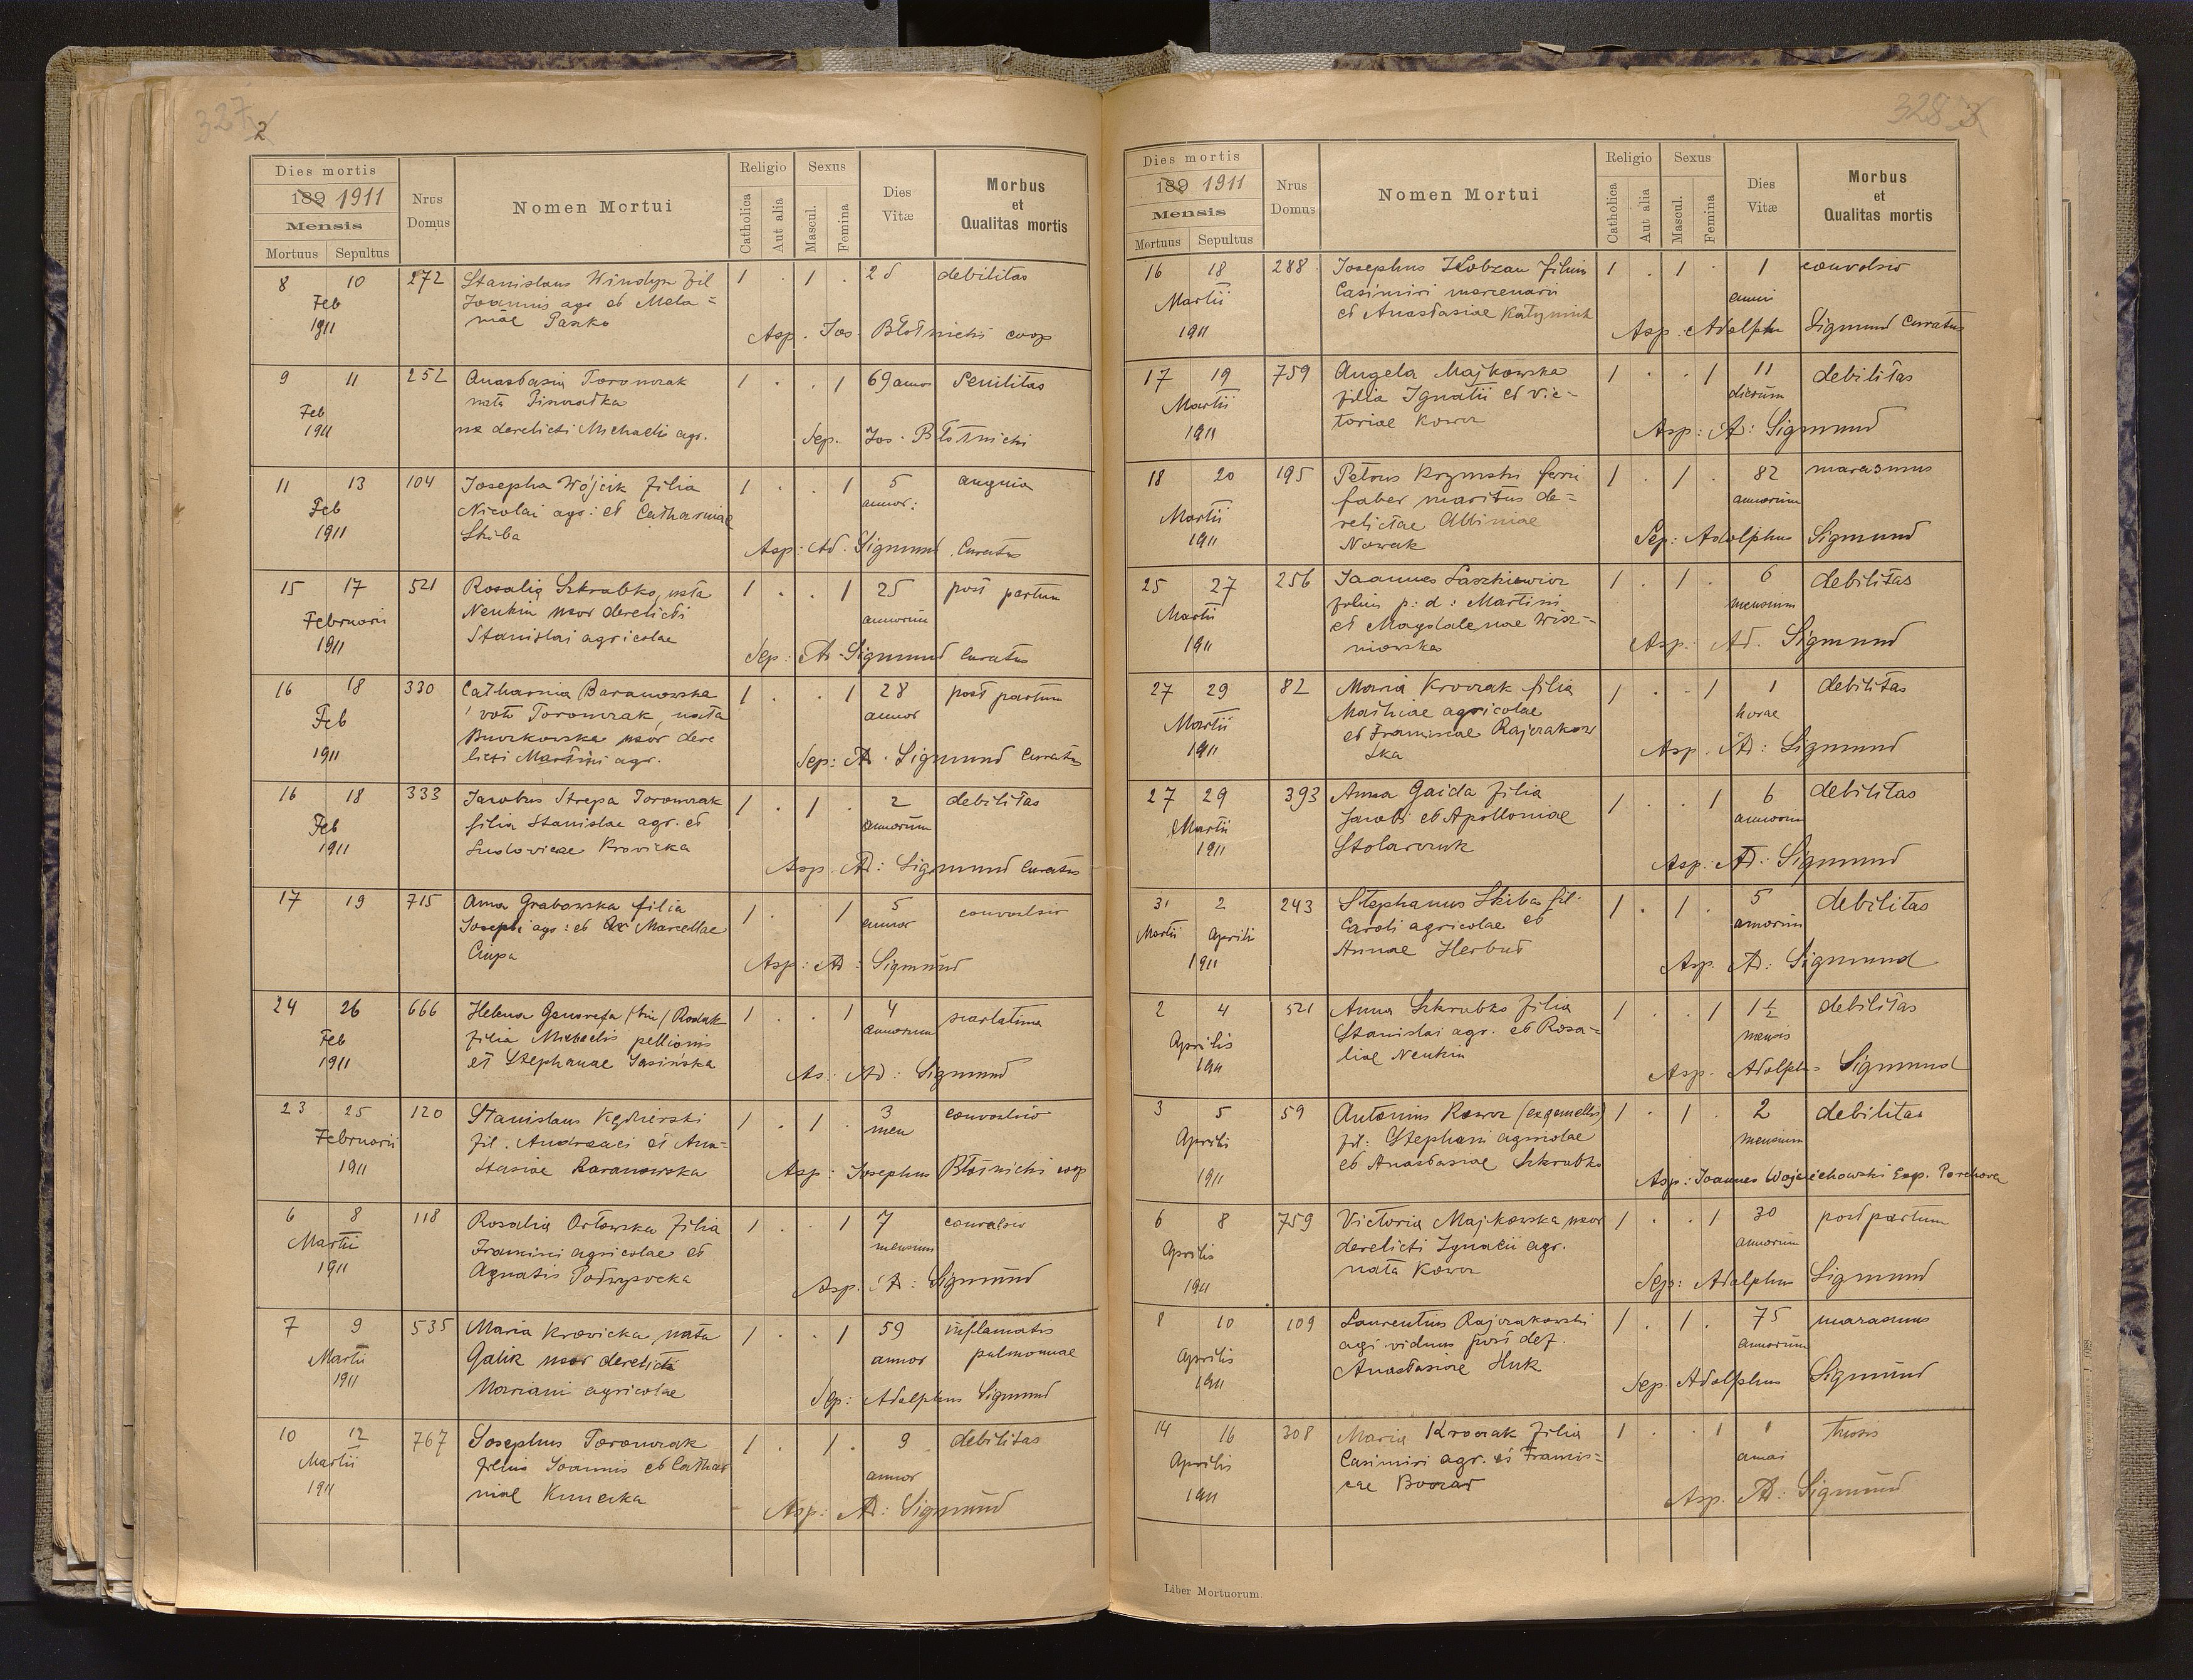 327 2
Dies mortis
189 1911
Mensis
Mortuus Sepultus
Nrus Domus
Nomen Mortui
Religio
Catholica Aut alia
Sexus
Mascul. Femina
Dies Vitæ
Morbus et Qualitas mortis
8 10 272 Stanislaus Windyk fil 1 . 1 . 25 debilitas
Feb Joannis agr et Mela=
1911 niae Paszko
Asp. Jos. Błotnicki coop
9 11 252 Anastasia Toronczak 1 . . 1 69 annor Senilitas
Feb nata
1911 derelicti Michaelis agr.
Sep. Jos. Błotnicki
11 13 104 Josepha Wójcik filia 1 . . 1 5 angina
Feb Nicolai agr: et Catharinae annor:
1911 Skiba
Asp: Ad. Sigmund Curatus
15 17 521 Rosalia Szkrabko, nata 1 . . 1 25 post partum
Februarii Neukin uxor derelicti annorum
1911 Stanislai agricolae
Sep: Ad. Sigmund Curatus
16 18 330 Catharina Baranowska 1 . . 1 28 post partum
Feb 1 voto Toronczak, nata annor
Buczkowska uxor dere
1911 licti Martini agr.
Sep: Ad. Sigmund Curatus
16 18 333 Jacobus Strepa Toronczak 1 . 1 . 2 debilitas
Feb filia Stanislae agr. et annorum
1911 Ludovicae Krovicka
Asp. Ad: Sigmund Curatus
17 19 715 Anna Grabowska filia 1 . 1 5 convulsio
Josephi agr: et Marcellae annor
Ciupa
Asp: Ad: Sigmund
24 26 666 Helena Genovefa (bin) Rodak 1 . . 1 4 scarlatina
Feb filia Michaelis pellionis annorum
1911 et Stephanae Jasińska
As: Ad: Sigmund
23 25 120 Stanislaus Kędzierski 1 . 1 . 3 convulsio
Februarii fil. Andreaei et Ana= men
1911 stasiae Baranowska
Asp: Josephus Błotnicki coop
6 8 118 Rosalia Orłowska filia 1 . . 1 7 convulsio
Martii Francisci agricolae et mensium
1911 Agnatis Podwysocka
Asp. Ad: Sigmund
7 9 535 Maria Krovicka, nata 1 . . 1 59 inflamatis
Martii Galik uxor derelicti annor pulmonuae
1911 Mariani agricolae
Sep: Adolphus Sigmund
10 12 767 Josephus Toronczak 1 . 1 . 9 debilitas
Martii filius Joannis et Cathar annor
1911 niae Kunecka
Asp: Ad: Sigmund
328 3
Dies mortis
189 1911
Mensis
Mortuus Sepultus
Nrus Domus
Nomen Mortui
Religio
Catholica Aut alia
Sexus
Mascul. Femina
Dies Vitæ
Morbus et Qualitas mortis
16 18 288 Josephus filius 1 . 1 . 1 convulsio
Martii Casimiri mercenarii anni
1911 et Anastasiae
Asp. Adolphu Sigmund Curatus
17 19 759 Angela Majkowska 1 . . 1 11 debilitas
Martii filia Ignatii et Vic= dierum
1911 toriae Kowcz
Asp: A: Sigmund
18 20 195 Petrus Krzymski ferri 1 . 1 . 82 marasmus
Martii faber maritus de= annorum
1911 relictae Albiniae
Nowak
Sep: Adolphus Sigmund
25 27 256 Joannes Laszkiewicz 1 . 1 . 6 debilitas
Martii filius p: d: Martini mensium
1911 et Magdalenae Wisz=
niowska
Asp: Ad. Sigmund
27 29 82 Maria Krovzak filia 1 . . 1 1 debilitas
Martii Mathiae agricolae horae
1911 et Franciscae Rajczakow
ska
Asp. Ad: Sigmund
27 29 393 Anna Gaida filia 1 . . 1 6 debilitas
Martii Jacobi et Apolloniae annorum
1911 Stolarczuk
Asp: Ad: Sigmund
31 2 243 Stephanus Skiba fil. 1 . 1 . 5 debilitas
Martii Aprilis Caroli agricolae et annorum
1911 Annae Herbut
Asp. Ad: Sigmund
2 4 521 Anna Szkrubko filia 1 . . 1 1½ debilitas
Aprilis Stanislai agr. et Rosa= mensis
1911 liae Neukin
Asp. Adolphus Sigmund
3 5 59 Antonius Kowcz (ex gemellis) 1 . 1 . 2 debilitas
Aprilis fil: Stephani agricolae mensium
1911 et Anastasiae Szkrubko
Asp: Joannes Wojciechowski Exp. Porchova
6 8 759 Victoria Majkowska uxor 1 . . 1 30 post partum
Aprilis derelicti Ignatii agr. annorum
1911 nata Kowcz
Sep: Adolphus Sigmund
8 10 109 Laurentius Rajczakowski 1 . 1 . 75 marasmus
Aprilis agr viduus post def. annorum
1911 Anastasiae Huk
Sep. Adolphus Sigmund
14 16 308 Maria Krovzak filia 1 . . 1 1 thisis
Aprilis Casimiri agr. et Francis= anni
1911 cae
Asp. Ad: Sigmund
Liber Mortuorum.